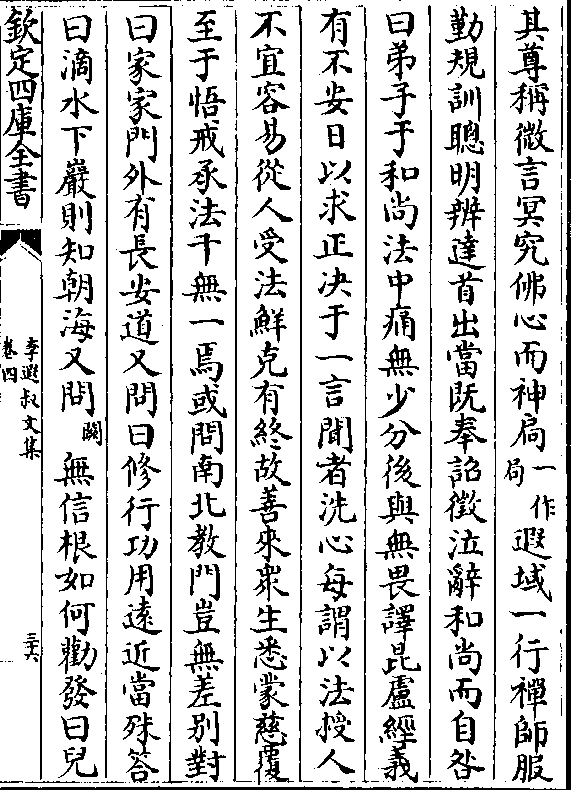 其尊稱微言冥究佛心而神局一作局遐域一行禪師服
勤規訓聰明辨達首出當既奉詔徵泣辭和尚而自咎
曰弟子于和尚法中痛無少分後與無畏譯毘盧經義
有不安日以求正决于一言聞者洗心每謂以法授人
不宜容易從人受法鮮克有終故善來衆生悉蒙慈覆
至于悟戒承法千無一焉或問南北教門豈無差别對
曰家家門外有長安道又問曰修行功用遠近當殊答
曰滴水下巖則知朝海又問闕無信根如何勸發曰兒
欽定四庫全書
李遐叔文集
卷四
三六